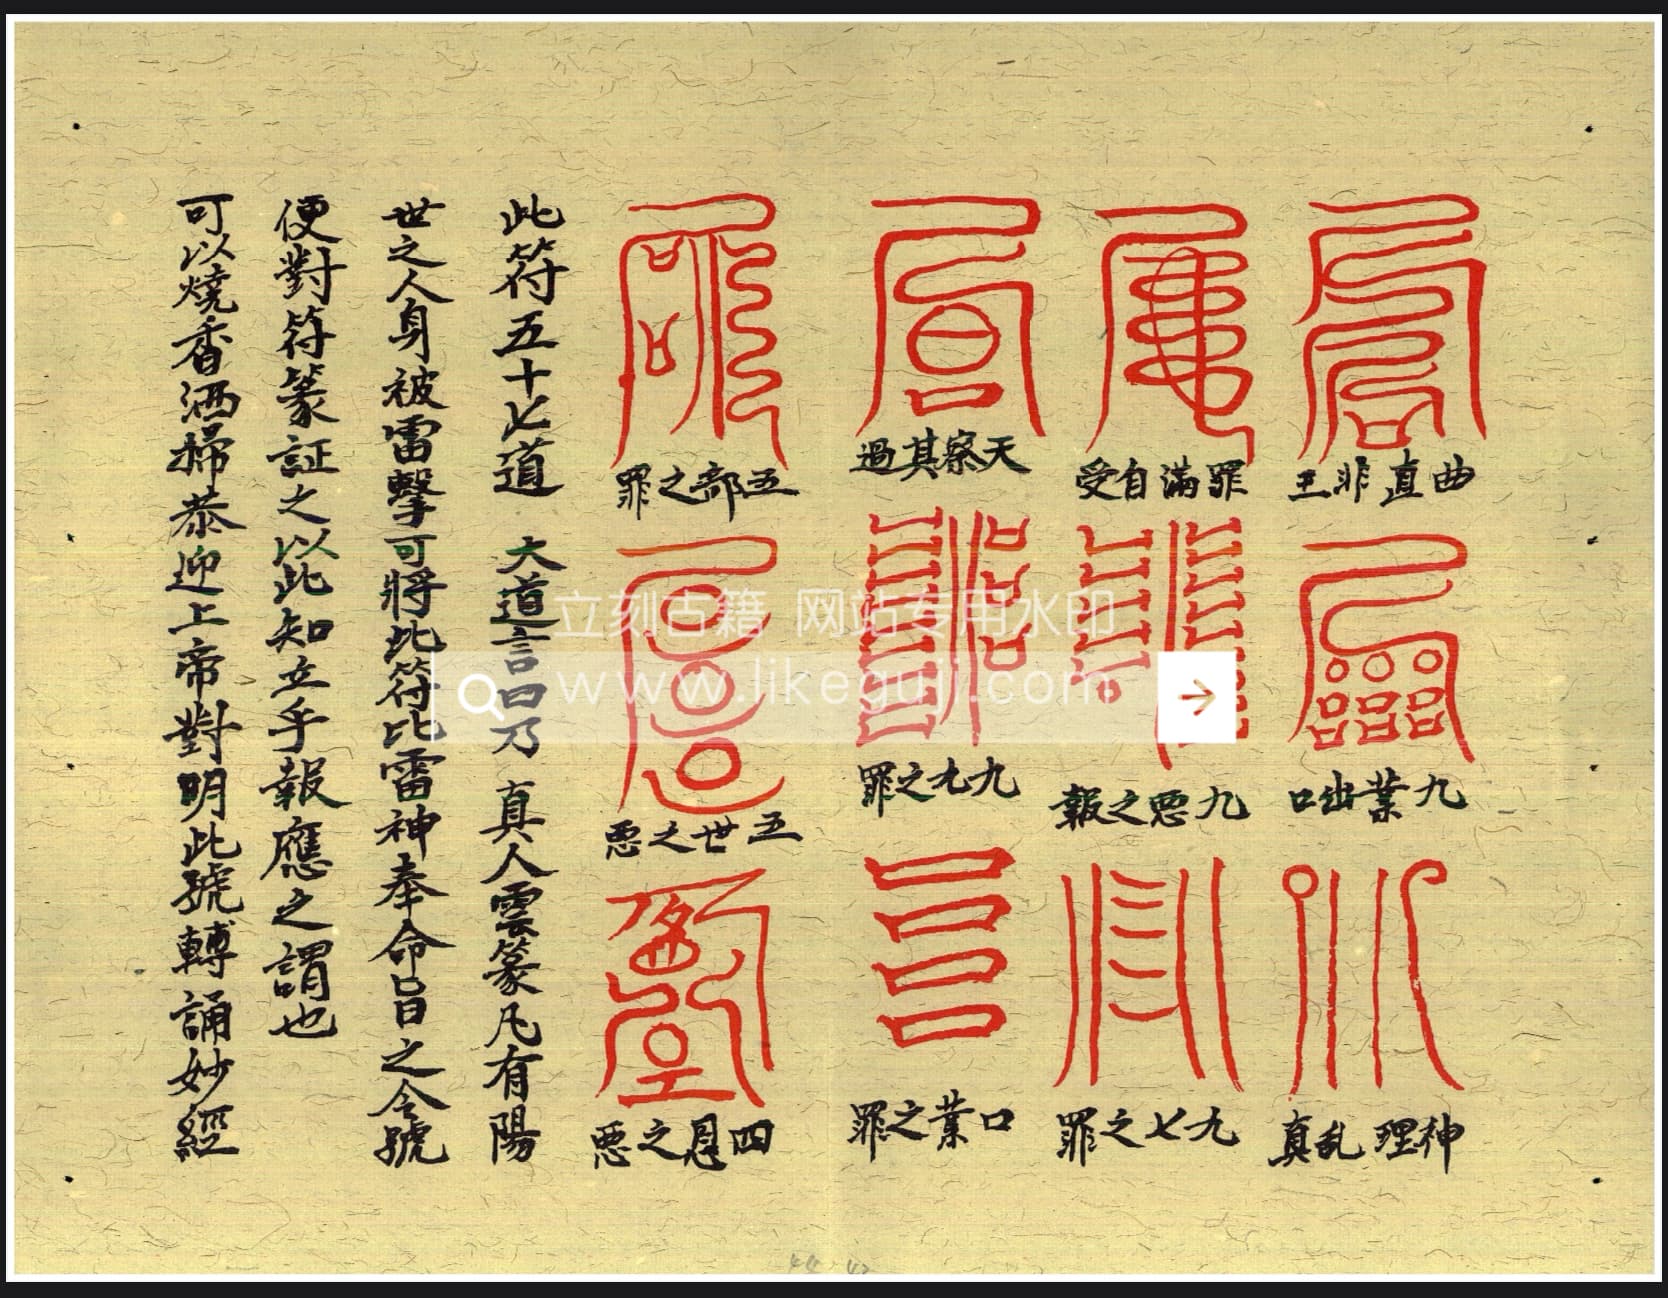 曲直非王
九業出口
神理乱真
罪滿自受
九悪之報
九七之罪
天察其過
九九之罪
口業之罪
五部之罪
五世之悪
四恩之悪
此符五十七道 大道言曰乃 真人雲篆凡有陽
世之人身被雷擊可將此符比雷神奉命旨之令號
便對符篆証之以此知立乎報應之謂也
可以燒香洒掃恭迎上帝對明此號轉誦妙經
立刻古籍 网站专用水印
www.likeguji.com